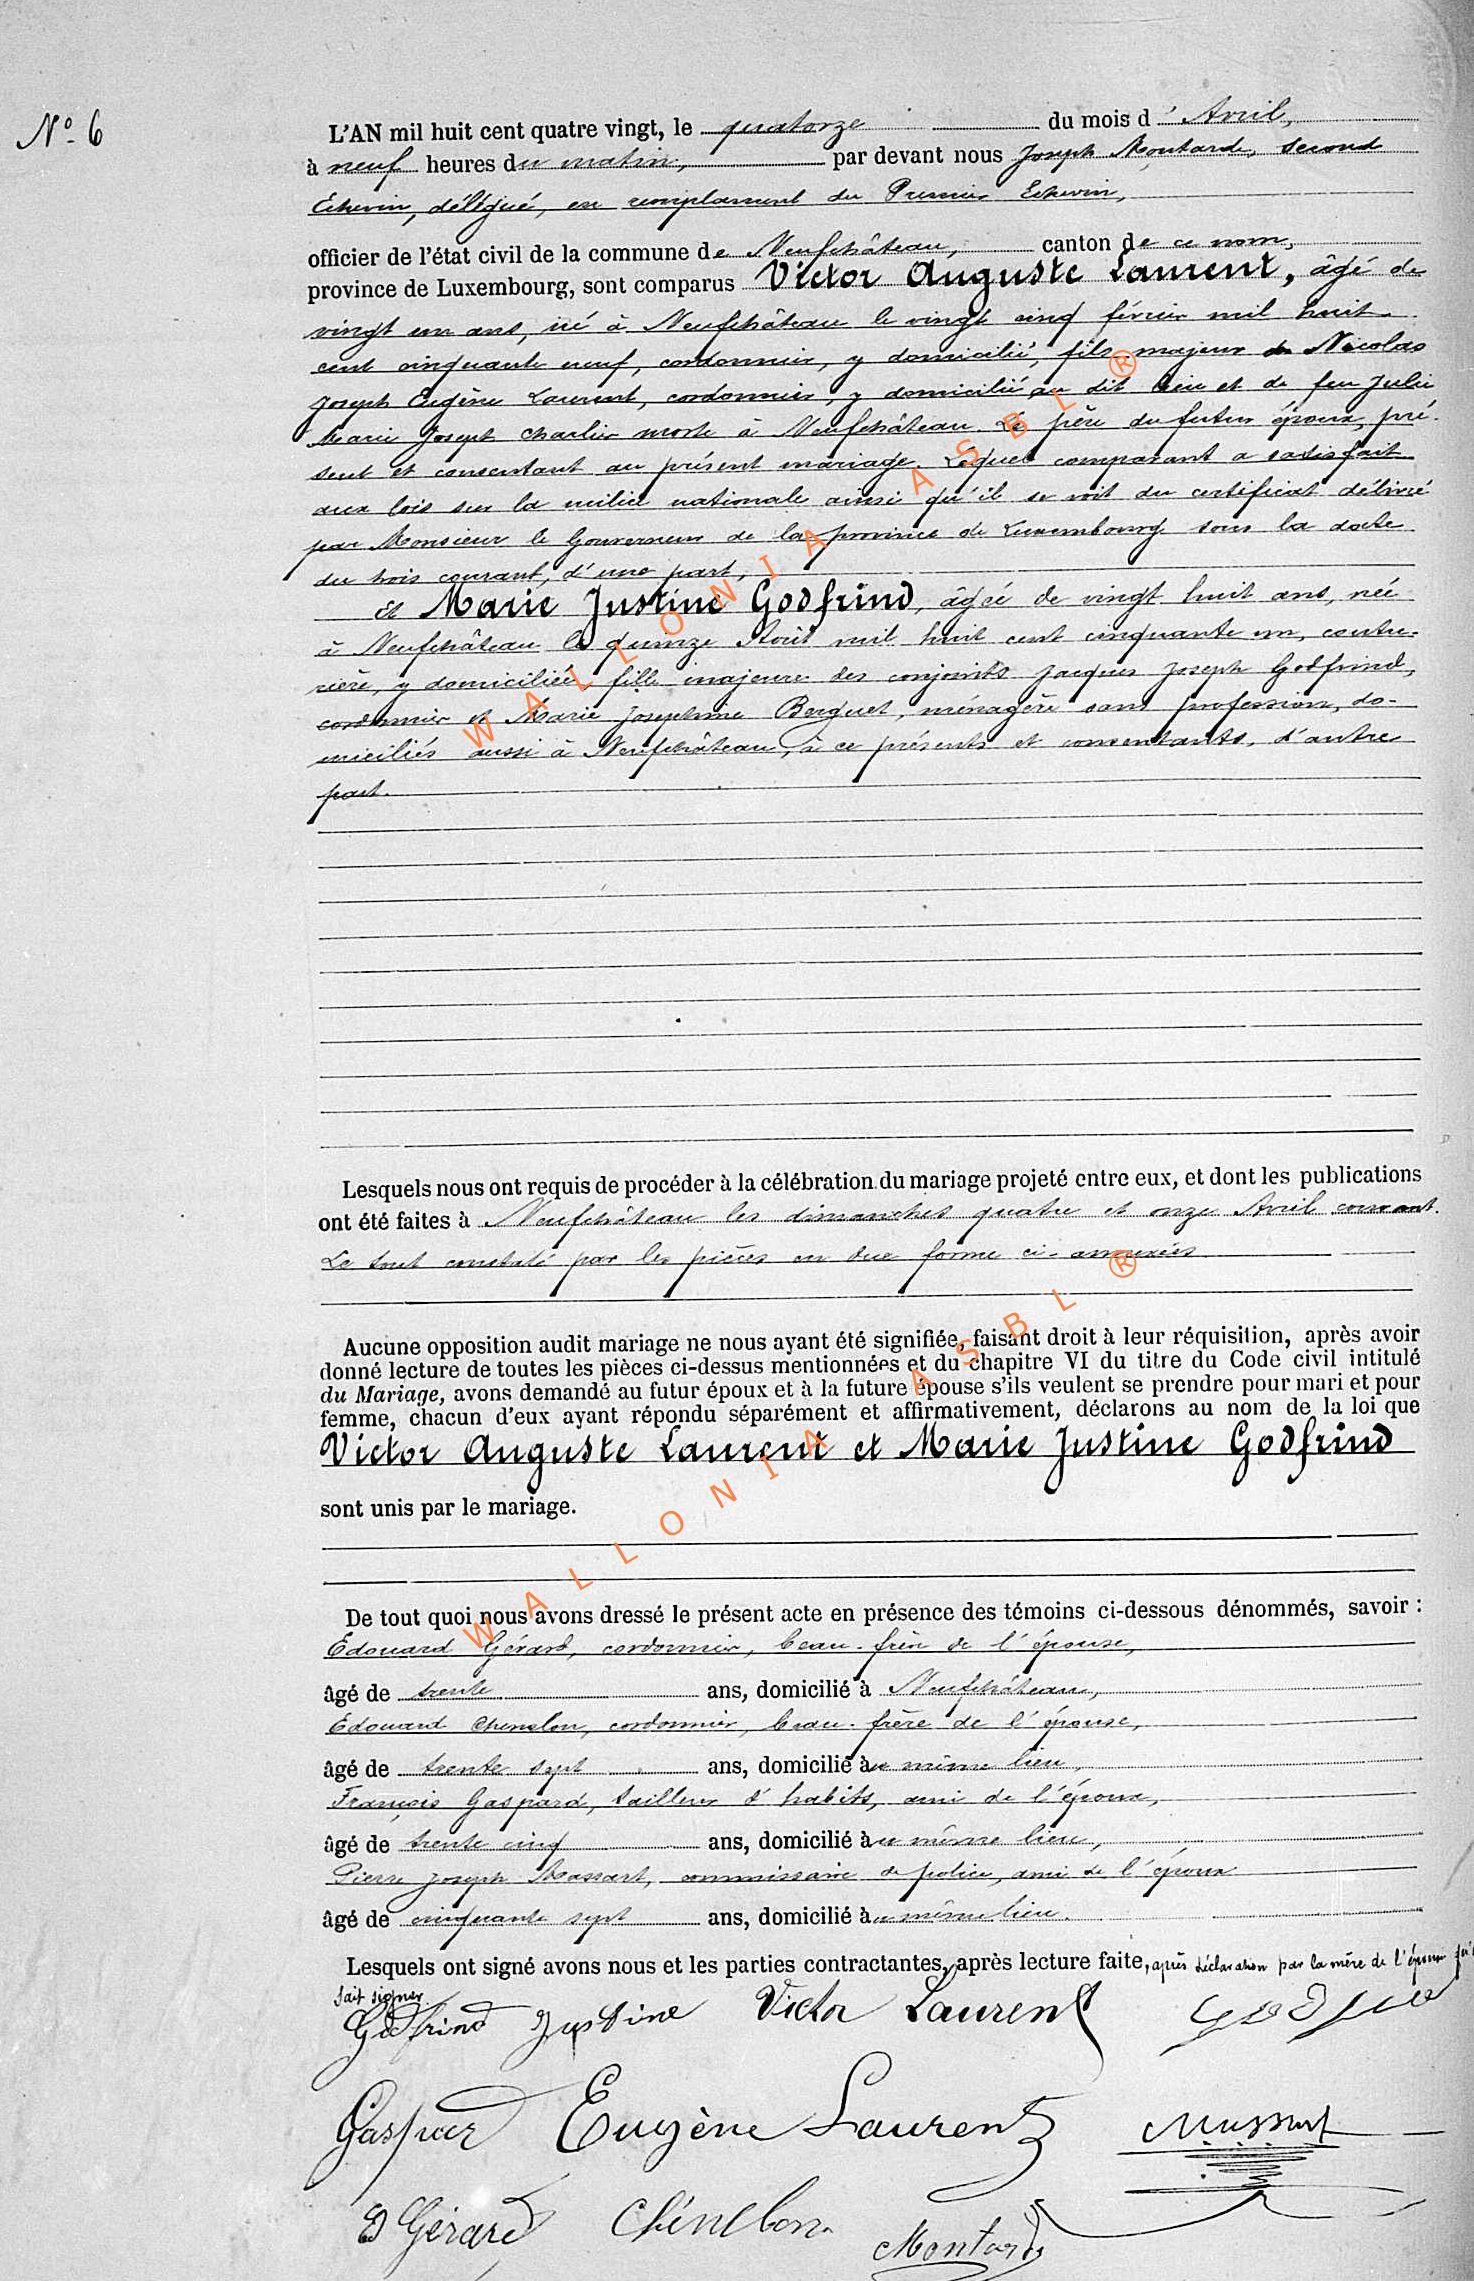 N° 6
L'AN mil huit cent quatre vingt, le quatorze du mois d' Avril,
à neuf heures du matin, par devant nous Joseph Montard, second
Echevin, délégué, en remplacement du Premier Echevin,
officier de l'état civil de la commune de Neufchâteau, canton de ce nom,
province de Luxembourg, sont comparus Victor Auguste Laurent, âgé de
vingt un ans, né à Neufchâteau le vingt cinq février mil huit
cent cinquante neuf, cordonnier, y domicilié, fils majeur de Nicolas
Joseph Eugène Laurent, cordonnier, y domicilié au dit lieu et de feu Julie
Marie Joseph Charlier morte à Neufchâteau. Le père du futur époux, pré-
sent et consentant au présent mariage. Lequel comparant a satisfait
aux lois sur la milice nationale ainsi qu'il se voit du certificat délivré
par Monsieur le Gouverneur de la province de Luxembourg sous la date
du trois courant, d'une part,
et Marie Justine Godfrind, âgée de vingt huit ans, née
à Neufchâteau le quinze Août mil huit cent cinquante un, coutu-
rière, y domiciliée, fille majeure des conjoints Jacques Joseph Godfrind,
cordonnier et Marie Josephine Berquet, ménagère sans profession, do-
miciliés aussi à Neufchâteau, à ce présents et consentants, d'autre
part.
Lesquels nous ont requis de procéder à la célébration du mariage projeté entre eux, et dont les publications
ont été faites à Neufchâteau les dimanches quatre et onze Avril courant.
Le tout constaté par les pièces en due forme ci-annexées
Aucune opposition audit mariage ne nous ayant été signifiée, faisant droit à leur réquisition, après avoir
donné lecture de toutes les pièces ci-dessus mentionnées et du chapitre VI du titre du Code civil intitulé
du Mariage, avons demandé au futur époux et à la future épouse s'ils veulent se prendre pour mari et pour
femme, chacun d'eux ayant répondu séparément et affirmativement, déclarons au nom de la loi que
Victor Auguste Laurent et Marie Justine Godfrind
sont unis par le mariage.
De tout quoi nous avons dressé le présent acte en présence des témoins ci-dessous dénommés, savoir :
Edouard Gérard, cordonnier, beau-frère de l'épouse,
âgé de trente ans, domicilié à Neufchâteau,
Edouard Chenelon, cordonnier, beau-frère de l'épouse,
âgé de trente sept ans, domicilié au même lieu,
François Gaspard, tailleur d'habits, ami de l'époux,
âgé de trente cinq ans, domicilié au même lieu,
Pierre Joseph Massart, commissaire de police, ami de l'époux
âgé de cinquante sept ans, domicilié au même lieu.
Lesquels ont signé avons nous et les parties contractantes, après lecture faite, après déclaration par la mère de l'épouse
sait signer
Godfrind Justine Victor Laurent
Gaspard Eugène Laurent Massart
E Gérard Chénelon Montard
WALLONIA ASBL ®
WALLONIA ASBL ®